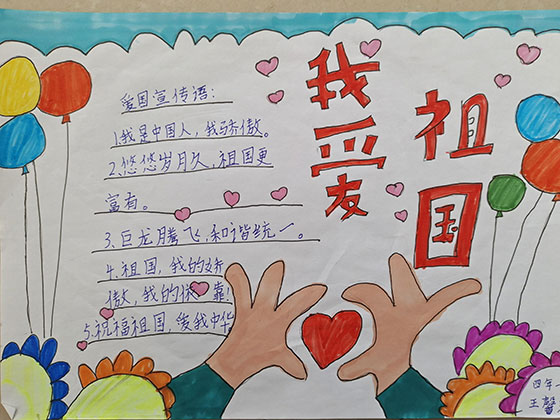 我爱
祖国
爱国宣传语:
1.我是中国人,我骄傲。
2.悠悠岁月久,祖国更
富有。
3、巨龙腾飞,和谐统一。
4、祖国,我的骄
傲大,我的依靠!
5、祝福祖国,爱我中华
四年一
王馨